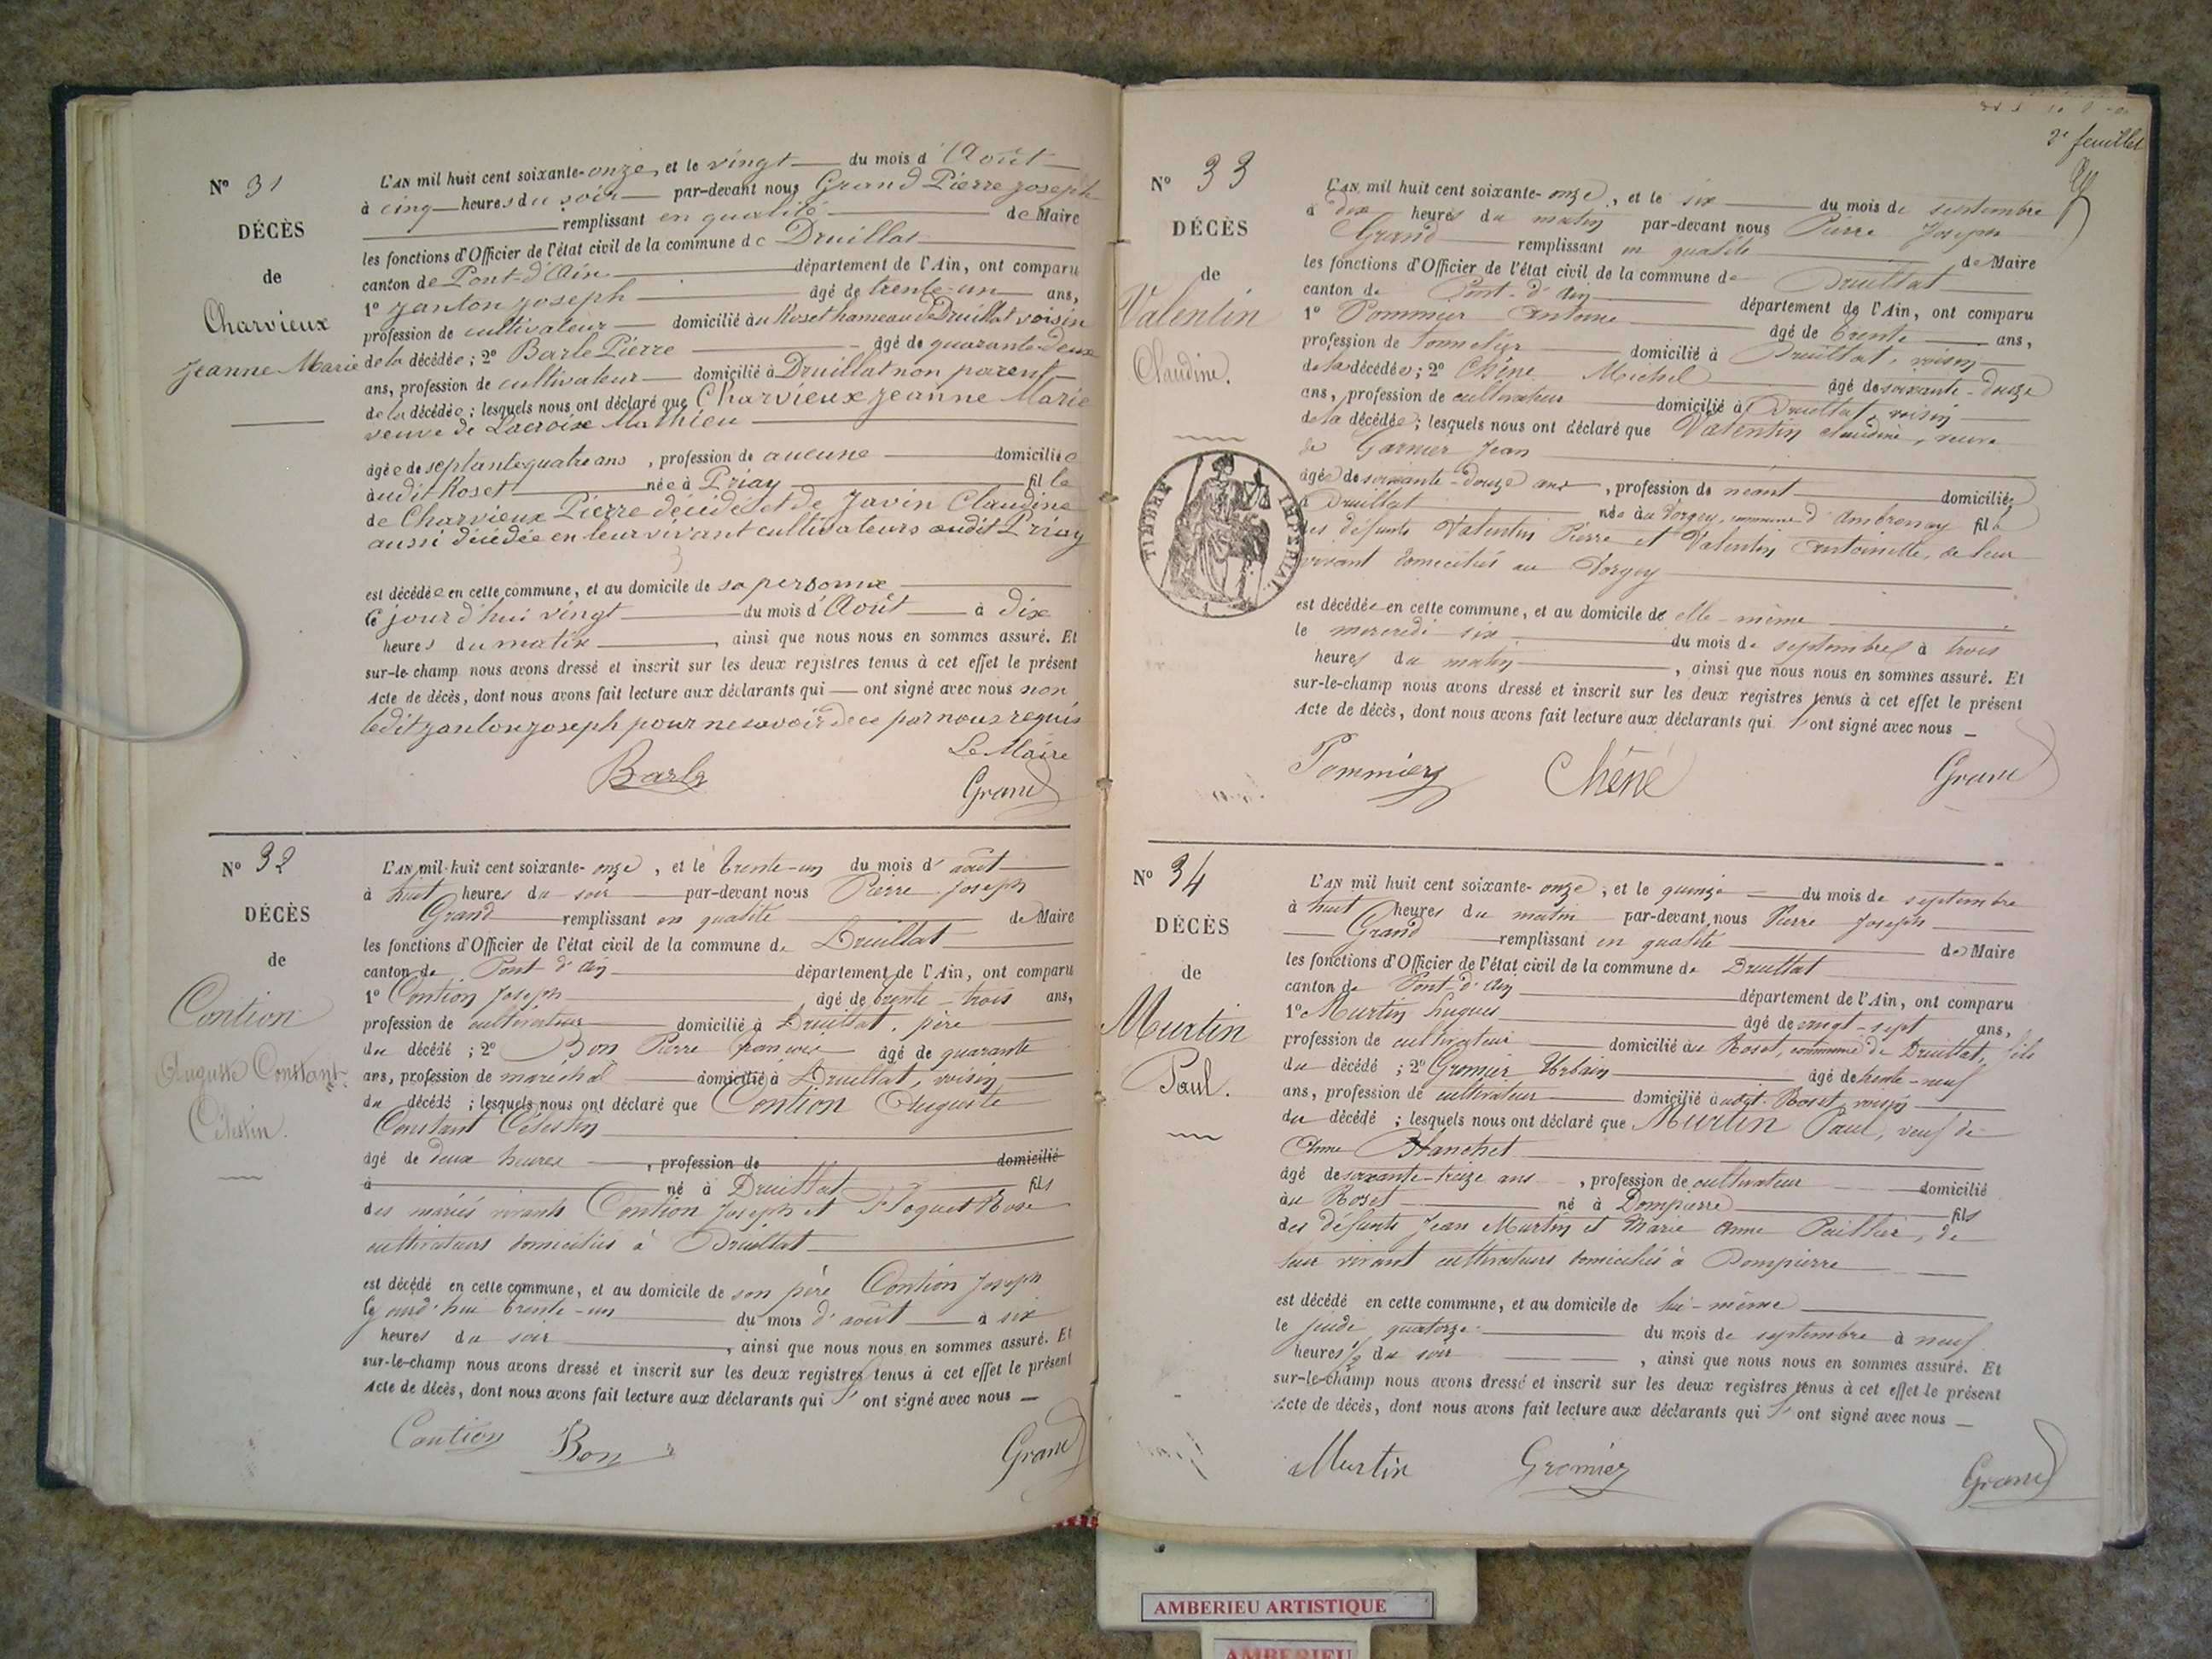 Nº 31
DÉCÈS
de
Charvieux
Jeanne Marie
L'AN mil huit cent soixante-onze, et le vingt du mois d'Août
à cinq heures du soir par-devant nous Grand Pierre Joseph
remplissant en qualité de Maire
les fonctions d'Officier de l'état civil de la commune de Druillat
canton de Pont-d'Ain département de l'Ain, ont comparu
1º Janton Joseph âgé de trente-un ans,
profession de cultivateur domicilié au Roset hameau de Druillat voisin
de la décédée ; 2º Barle Pierre âgé de quarante deux
ans, profession de cultivateur domicilié à Druillat non parent
de la décédée ; lesquels nous ont déclaré que Charvieux Jeanne Marie
veuve de Lacroix Mathieu
âgée de septante quatre ans , profession de aucune domiciliée
audit Roset née à Priay fille
de Charvieux Pierre décédé et de Javin Claudine
aussi décédée en leur vivant cultivateurs audit Priay
est décédée en cette commune, et au domicile de sa personne
ce jourd'hui vingt du mois d'Août à dix
heures du matin , ainsi que nous nous en sommes assuré. Et
sur-le-champ nous avons dressé et inscrit sur les deux registres tenus à cet effet le présent
Acte de décès, dont nous avons fait lecture aux déclarants qui ont signé avec nous non
ledit Janton Joseph pour ne savoir de ce par nous requis
Le Maire
Barle Grand
Nº 32
DÉCÈS
de
Contion
Auguste Constant
Célestin.
L'AN mil huit cent soixante-onze, et le trente-un du mois d'août
à huit heures du soir par-devant nous Pierre Joseph
Grand remplissant en qualité de Maire
les fonctions d'Officier de l'état civil de la commune de Druillat
canton de Pont-d'Ain département de l'Ain, ont comparu
1º Contion Joseph , âgé de trente-trois ans,
profession de cultivateur domicilié à Druillat, père
du décédé ; 2º Bon Pierre françois âgé de quarante
ans, profession de maréchal domicilié à Druillat, voisin
du décédé ; lesquels nous ont déclaré que Contion Auguste
Constant Célestin
âgé de deux heures , profession de domicilié
à né à Druillat fils
des mariés vivants Contion Joseph et Floquet Rose
cultivateurs domiciliés à Druillat
est décédé en cette commune, et au domicile de son père Contion Joseph
ce jourd'hui trente-un du mois d'août à six
heures du soir , ainsi que nous nous en sommes assuré. Et
sur-le-champ nous avons dressé et inscrit sur les deux registres tenus à cet effet le présent
Acte de décès, dont nous avons fait lecture aux déclarants qui l'ont signé avec nous
Contion Bon Grand
2e feuillet
Nº 33
DÉCÈS
de
Valentin
Claudine.
TIMBRE IMPÉRIAL
L'AN mil huit cent soixante-onze, et le six du mois de septembre
à dix heures du matin par-devant nous Pierre Joseph
Grand remplissant en qualité de Maire
les fonctions d'Officier de l'état civil de la commune de Druillat
canton de Pont-d'Ain département de l'Ain, ont comparu
1º Pommier Antoine âgé de trente ans,
profession de tonnelier domicilié à Druillat, voisin
de la décédée ; 2º Chêne Michel âgé de soixante-douze
ans, profession de cultivateur domicilié à Druillat, voisin
de la décédée ; lesquels nous ont déclaré que Valentin Claudine, veuve
de Garnier Jean
âgée de soixante-douze ans , profession de néant domiciliée
à Druillat née au Vorgey, commune d'Ambronay fille
des défunts Valentin Pierre et Valentin Antoinette, de leur
vivant domiciliés au Vorgey
est décédée en cette commune, et au domicile de elle-même
le mercredi six du mois de septembre à trois
heures du matin , ainsi que nous nous en sommes assuré. Et
sur-le-champ nous avons dressé et inscrit sur les deux registres tenus à cet effet le présent
Acte de décès, dont nous avons fait lecture aux déclarants qui l'ont signé avec nous
Pommier Chêne Grand
Nº 34
DÉCÈS
de
Murtin
Paul.
L'AN mil huit cent soixante-onze, et le quinze du mois de septembre
à huit heures du matin par-devant nous Pierre Joseph
Grand remplissant en qualité de Maire
les fonctions d'Officier de l'état civil de la commune de Druillat
canton de Pont-d'Ain département de l'Ain, ont comparu
1º Murtin hugues âgé de vingt-sept ans,
profession de cultivateur domicilié au Roset, commune de Druillat, fils
du décédé ; 2º Gromier Urbain âgé de trente-neuf
ans, profession de cultivateur domicilié audit Roset, voisin
du décédé ; lesquels nous ont déclaré que Murtin Paul, veuf de
Anne Blanchet
âgé de soixante-treize ans , profession de cultivateur domicilié
au Roset né à Dompierre fils
des défunts Jean Murtin et Marie Anne Paillier, de
leur vivant cultivateurs domiciliés à Dompierre
est décédé en cette commune, et au domicile de lui-même
le jeudi quatorze du mois de septembre à neuf
heures 1/2 du soir , ainsi que nous nous en sommes assuré. Et
sur-le-champ nous avons dressé et inscrit sur les deux registres tenus à cet effet le présent
Acte de décès, dont nous avons fait lecture aux déclarants qui l'ont signé avec nous
Murtin Gromier Grand
AMBERIEU ARTISTIQUE
AMBERIEU